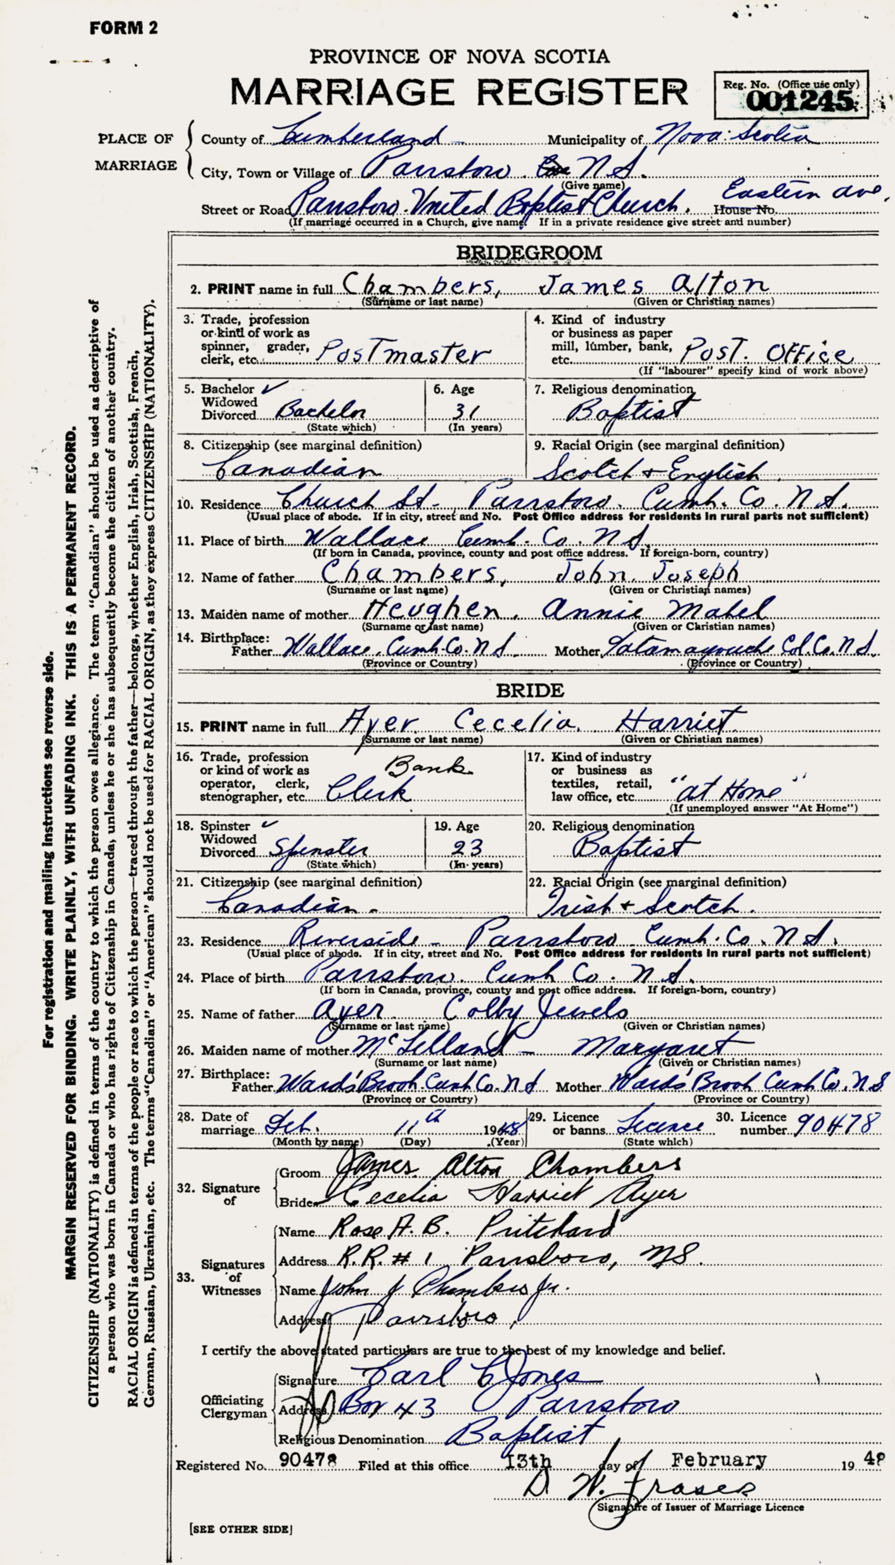 FORM 2
PROVINCE OF NOVA SCOTIA
MARRIAGE REGISTER
Reg. No. (Office use only)
001245
PLACE OF MARRIAGE
County of Cumberland Municipality of Nova Scotia
City, Town or Village of Parrsboro N.S.
(Give name)
Street or Road Parrsboro United Baptist Church. House No. Eastern Ave.
(If marriage occurred in a Church, give name. If in a private residence give street and number)
BRIDEGROOM
2. PRINT name in full Chambers, James Alton
(Surname or last name) (Given or Christian names)
3. Trade, profession or kind of work as spinner, grader, clerk, etc. Postmaster
4. Kind of industry or business as paper mill, lumber, bank, etc. Post Office
(If "labourer" specify kind of work above)
5. Bachelor ✓ Widowed Divorced Bachelor
(State which)
6. Age 31
(In years)
7. Religious denomination Baptist
8. Citizenship (see marginal definition) Canadian
9. Racial Origin (see marginal definition) Scotch & English
10. Residence Church St- Parrsboro. Cumb. Co. N.S.
(Usual place of abode. If in city, street and No. Post Office address for residents in rural parts not sufficient)
11. Place of birth Wallace Cumb. Co. N.S.
(If born in Canada, province, county and post office address. If foreign-born, country)
12. Name of father Chambers, John Joseph
(Surname or last name) (Given or Christian names)
13. Maiden name of mother Heughen, Annie Mabel
(Surname or last name) (Given or Christian names)
14. Birthplace: Father Wallace, Cumb. Co. N.S. Mother Tatamagouche Col. Co. N.S.
(Province or Country) (Province or Country)
BRIDE
15. PRINT name in full Ayer Cecelia Harriet
(Surname or last name) (Given or Christian names)
16. Trade, profession or kind of work as operator, clerk, stenographer, etc. Bank Clerk
17. Kind of industry or business as textiles, retail, law office, etc. "at Home"
(If unemployed answer "At Home")
18. Spinster ✓ Widowed Divorced Spinster
(State which)
19. Age 23
(In years)
20. Religious denomination Baptist
21. Citizenship (see marginal definition) Canadian.
22. Racial Origin (see marginal definition) Irish & Scotch.
23. Residence Riverside - Parrsboro Cumb. Co. N.S.
(Usual place of abode. If in city, street and No. Post Office address for residents in rural parts not sufficient)
24. Place of birth Parrsboro. Cumb Co. N.S.
(If born in Canada, province, county and post office address. If foreign-born, country)
25. Name of father Ayer Colby
(Surname or last name) (Given or Christian names)
26. Maiden name of mother McLelland - Margaret
(Surname or last name) (Given or Christian names)
27. Birthplace: Father Wards' Brook Cumb Co. N.S Mother Wards' Brook Cumb Co. N.S
(Province or Country) (Province or Country)
28. Date of marriage Feb. 11th 1948
(Month by name) (Day) (Year)
29. Licence or banns Licence
(State which)
30. Licence number 90478
32. Signature of
Groom James Alton Chambers
Bride Cecelia Harriet Ayer
33. Signatures of Witnesses
Name Rose A. B. Pritchard
Address R.R. # 1 Parrsboro, NS.
Name John J Chambers Jr.
Address Parrsboro,
I certify the above stated particulars are true to the best of my knowledge and belief.
Officiating Clergyman
Signature Carl C Jones
Address Box 43 Parrsboro
Religious Denomination Baptist
Registered No. 90478 Filed at this office 13th day of February 1948
D W. Fraser
Signature of Issuer of Marriage Licence
[SEE OTHER SIDE]
For registration and mailing instructions see reverse side.
MARGIN RESERVED FOR BINDING. WRITE PLAINLY, WITH UNFADING INK. THIS IS A PERMANENT RECORD.
CITIZENSHIP (NATIONALITY) is defined in terms of the country to which the person owes allegiance. The term "Canadian" should be used as descriptive of
a person who was born in Canada or who has rights of Citizenship in Canada, unless he or she has subsequently become the citizen of another country.
RACIAL ORIGIN is defined in terms of the people or race to which the person—traced through the father—belongs, whether English, Irish, Scottish, French,
German, Russian, Ukrainian, etc. The terms "Canadian" or "American" should not be used for RACIAL ORIGIN, as they express CITIZENSHIP (NATIONALITY).